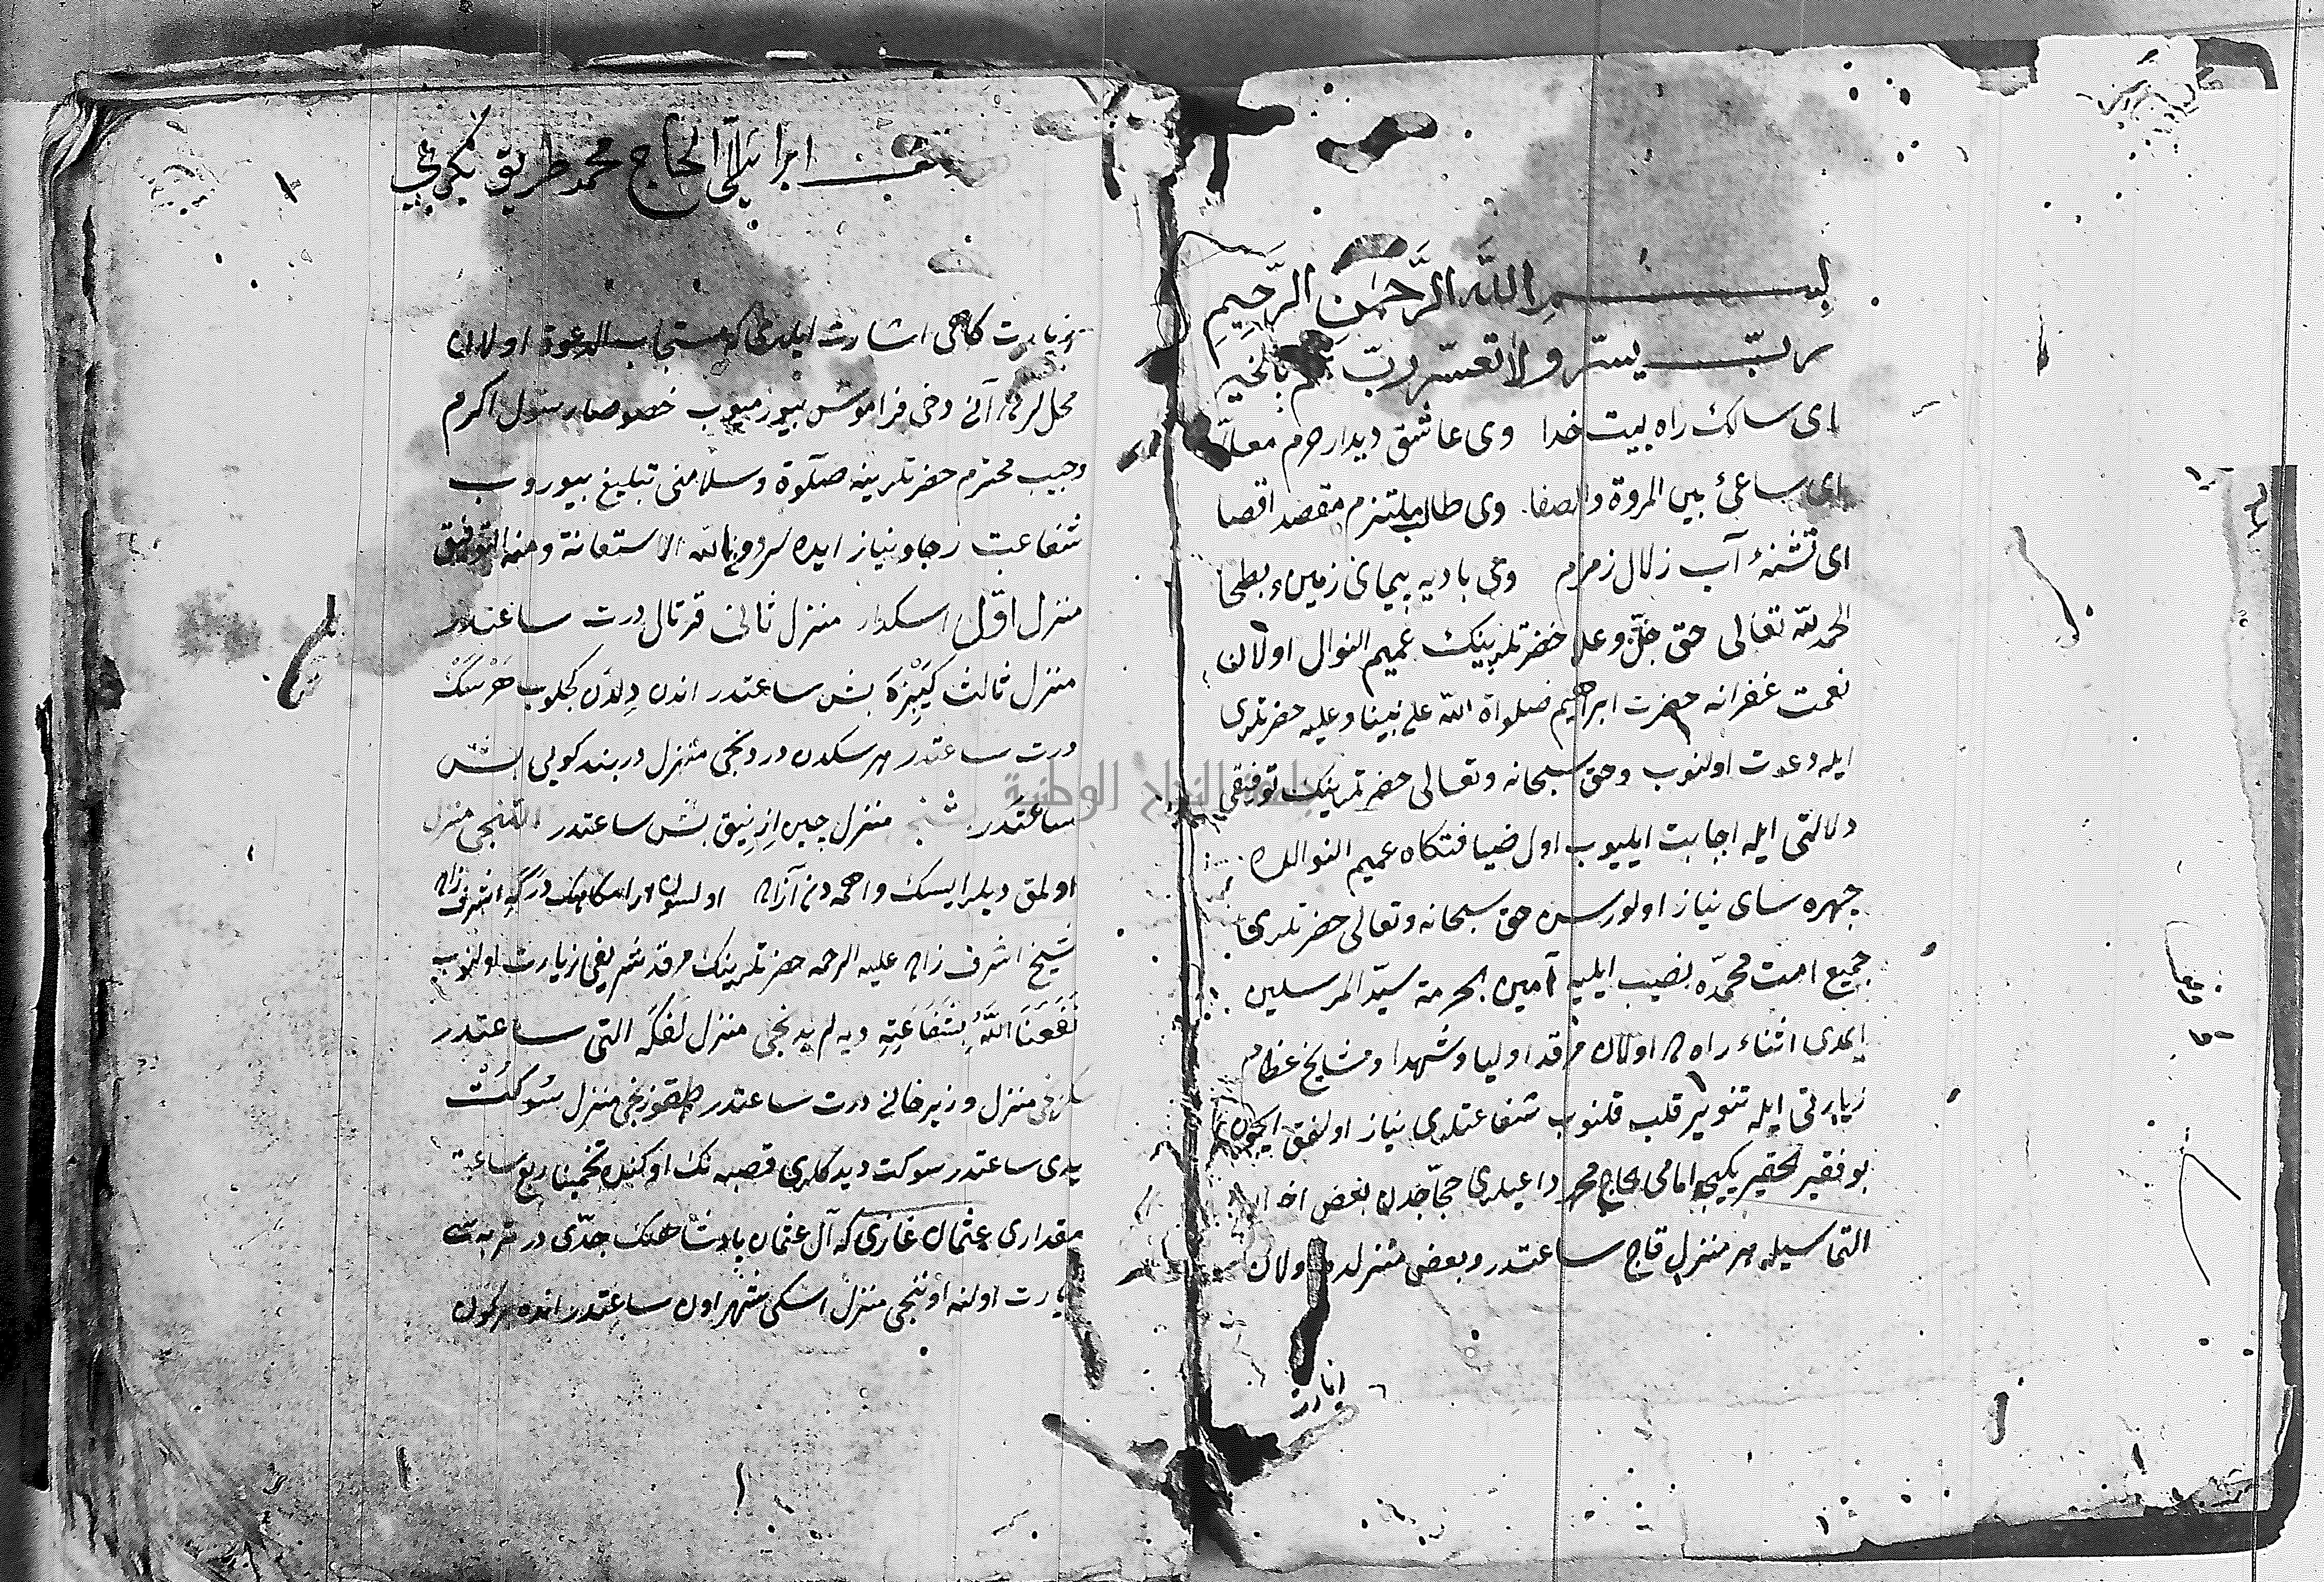 بسم الله الرحمن الرحيم
رب يسر ولا تعسر رب تمم بالخير
ای سالك راه بيت خدا وی عاشق ديدار حرم معلا
ای ساعئ بين المروة والصفا وی طالب ملتزم مقصد اقصا
ای تشنهٔ آب زلال زمزم وی باديه پيمای زمين بطحا
الحمد لله تعالى حق جل وعلا حضرتلرينك عميم النوال اولان
نعمت غفرانه حضرت ابراهيم صلواة الله على نبينا وعليه حضرتلری
ايله دعوت اولنوب وحق سبحانه وتعالى حضرتلرينك توفيقی
دلالتی ايله اجابت ايليوب اول ضيافتكاه عميم النوالده
چهره سای نياز اولورسن حق سبحانه وتعالى حضرتلری
جميع امت محمده نصيب ايليه آمين بحرمة سيد المرسلين
ايمدی اثناء راهده اولان مرقد اوليا وشهدا ومشايخ عظام
زيارتی ايله تنوير قلب قلنوب شفاعتلری نياز اولنمق ايچون
بو فقير الحقير امامی الحاج محمد داعيلری حجاجدن بعض
التماسيله هر منزل قاچ ساعتدر وبعض منزلده اولان
الحاج محمد طريق
زيارتكاهی اشارت ايلدی كه مستجاب الدعوة اولان
محللرده آنی دخی فراموش بيورميوب خصوصا رسول اكرم
وحبيب محترم حضرتلرينه صلوة وسلامنی تبليغ بيوروب
شفاعت رجا ونياز ايده لر وبالله الاستعانة ومنه التوفيق
منزل اول اسكدار منزل ثانی قرتال درت ساعتدر
منزل ثالث كيبزه بش ساعتدر اندن دلدن كچلوب هرسك
درت ساعتدر هرسكدن دردنجی منزل دربند كويی بش
ساعتدر بشنجی منزل چين ازنيق بش ساعتدر التنجی منزل
اولمق ديلر ايسك آزاده اولسون درگه اشرف زاده
شيخ اشرف زاده عليه الرحمه حضرتلرينك مرقد شريفی زيارت اولنوب
نفعنا الله بشفاعته ديه لر يدنجی منزل لفكه التی ساعتدر
سكزنجی منزل وزيرخانی درت ساعتدر طقوزنجی منزل سوكت
يدی ساعتدر سوكت ديدكلری قصبه نك اوكنده تخمينا ربع ساعت
مقداری عثمان غازی كه آل عثمان پادشاهنك جدی در تربه سی
زيارت اولنه اوننجی منزل اسكی شهر اون ساعتدر انده